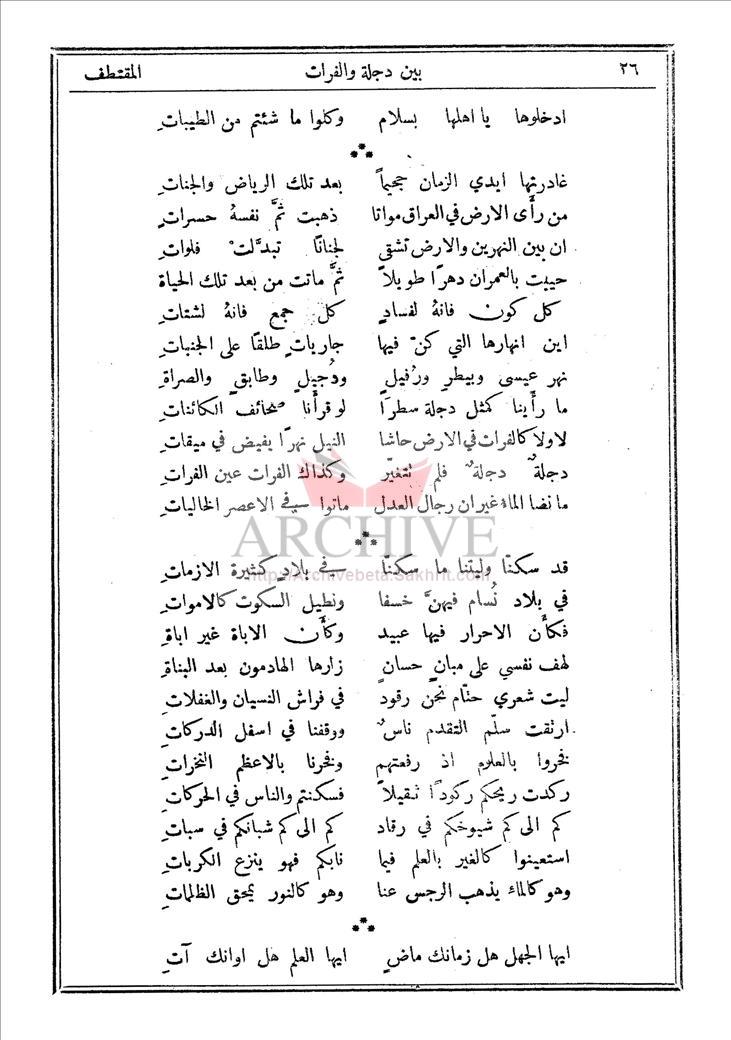 ٢٦ بين دجلة والفرات المقتطف
ادخلوها يا اهلها بسلام وكلوا ما شئتم من الطيباتِ
غادرتها ايدي الزمان جحيماً بعد تلك الرياض والجناتِ
من رأى الارض في العراق مواتا ذهبت ثمَّ نفسهُ حسراتٍ
ان بين النهرين والارض تشقى لجنانًا تبدَّلتْ فلواتِ
حييت بالعمران دهرًا طويلاً ثمَّ ماتت من بعد تلك الحياة
كل كون فانهُ لفسادٍ كل جمع فانهُ لشتاتِ
اين انهارها التي كنَّ فيها جارياتٍ طلقًا على الجنباتِ
نهر عيسى وبيطرٍ ورُفيلٍ ودُجيلٍ وطابقٍ والصراةِ
ما رأينا كمثل دجلة سطرًا لو قرأنا صحائف الكائناتِ
لا ولا كالفرات في الارض حاشا النيل نهرًا يفيض في ميقاتِ
دجلةٌ دجلةٌ فلم تتغيّر وكذاك الفرات عين الفراتِ
ما نضا الماء غير ان رجال العدل ماتوا في الاعصر الخالياتِ
ARCHIVE
http://Archivebeta.Sakhrit.com
قد سكنّا وليتنا ما سكنّا في بلادٍ كثيرة الازماتِ
في بلاد نُسام فيهنَّ خسفا ونطيل السكوت كالامواتِ
فكأن الاحرار فيها عبيد وكأن الاباة غير اباةِ
لهف نفسي على مبانٍ حسانٍ زارها الهادمون بعد البناةِ
ليت شعري حتّام نحن رقودٌ في فراش النسيان والغفلاتِ
ارتقت سلّم التقدم ناسٌ ووقفنا في اسفل الدركاتِ
فخروا بالعلوم اذ رفعتهم وفخرنا بالاعظم النخراتِ
ركدت ريحكم ركودًا ثقيلاً فسكنتم والناس في الحركاتِ
كم الى كم شيوخكم في رقاد كم الى كم شبانكم في سباتِ
استعينوا كالغير بالعلم فيما نابكم فهو ينزع الكرباتِ
وهو كالماء يذهب الرجس عنا وهو كالنور يمحق الظلماتِ
ايها الجهل هل زمانك ماضٍ ايها العلم هل اوانك آتِ